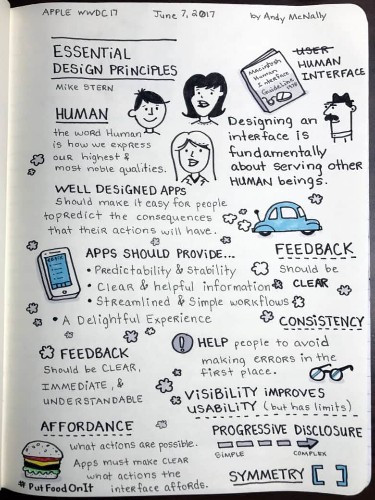 APPLE WWDC17 June 7, 2017 by Andy McNally
ESSENTIAL
DESIGN PRINCIPLES
MIKE STERN
Macintosh
Human
Interface
Guidelines
USER
HUMAN
INTERFACE
HUMAN
the word Human
is how we express
our highest &
most noble qualities.
Designing an
interface is
fundamentally
about serving other
HUMAN beings.
WELL DESIGNED APPS
Should make it easy for people
to predict the consequences
that their actions will have.
APPS SHOULD PROVIDE...
• Predictability & Stability
• Clear & helpful information
• Streamlined & Simple workflows
• A Delightful Experience
FEEDBACK
Should be
CLEAR
CONSISTENCY
FEEDBACK
Should be CLEAR,
IMMEDIATE, &
UNDERSTANDABLE
! HELP people to avoid
making ERRORS in the
first place.
VISIBILITY IMPROVES
USABILITY (but has limits)
AFFORDANCE
what actions are possible.
Apps must make CLEAR
what actions the
interface affords.
#PutFoodOnIt
PROGRESSIVE DISCLOSURE
SIMPLE COMPLEX
SYMMETRY [ ]